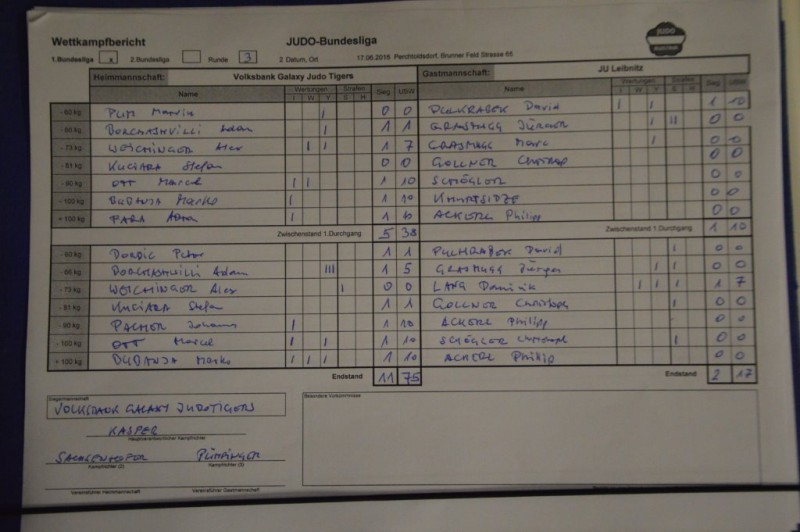 Wettkampfbericht JUDO-Bundesliga JUDO
1.Bundesliga x 2.Bundesliga Runde 3 2 Datum, Ort 17.06.2016 Perchtoldsdorf, Brunner Feld Strasse 65
Heimmannschaft: Volksbank Galaxy Judo Tigers Gastmannschaft: JU Leibnitz
Name Wertungen Strafen Sieg UBW Name Wertungen Strafen Sieg UBW
I W Y S H I W Y S H
- 60 kg 0 0 PUCHRABEK David 1 10
- 66 kg BORCHASHVILLI Adam 1 1 GRASMUGG Jürgen 0 0
- 73 kg WEICHINGER Alex 1 7 GRASMUGG Marc 0 0
- 81 kg KUCIARA Stefan 0 0 GOLLNER Christoph 0 0
- 90 kg OTT Marcel 1 10 SCHÖGLER 0 0
- 100 kg BUBANJA Marko 1 10 0 0
+ 100 kg FARA Adam 1 ACKERL Philipp 0 0
Zwischenstand 1.Durchgang 5 38 Zwischenstand 1.Durchgang 1 10
- 60 kg DORDIC Petar 1 1 PUCHRABEK David 0 0
- 66 kg BORCHASHVILLI Adam 1 5 GRASMUGG Jürgen 0 0
- 73 kg WEICHINGER Alex 0 0 LANG Dominik 1 7
- 81 kg KUCIARA Stefan 1 1 GOLLNER Christoph 0 0
- 90 kg PACHER Johannes 1 10 ACKERL Philipp 0 0
- 100 kg OTT Marcel 1 10 SCHÖGLER Christoph 0 0
+ 100 kg BUBANJA Marko 1 10 ACKERL Philip 0 0
Endstand 11 75 Endstand 2 17
Siegermannschaft
VOLKSBANK GALAXY JUDOTIGERS
KASPER
Hauptverantwortlicher Kampfrichter
SACHSENHOFER PÜHRINGER
Kampfrichter (2) Kampfrichter (3)
Vereinsführer Heimmannschaft Vereinsführer Gastmannschaft
Besondere Vorkommnisse